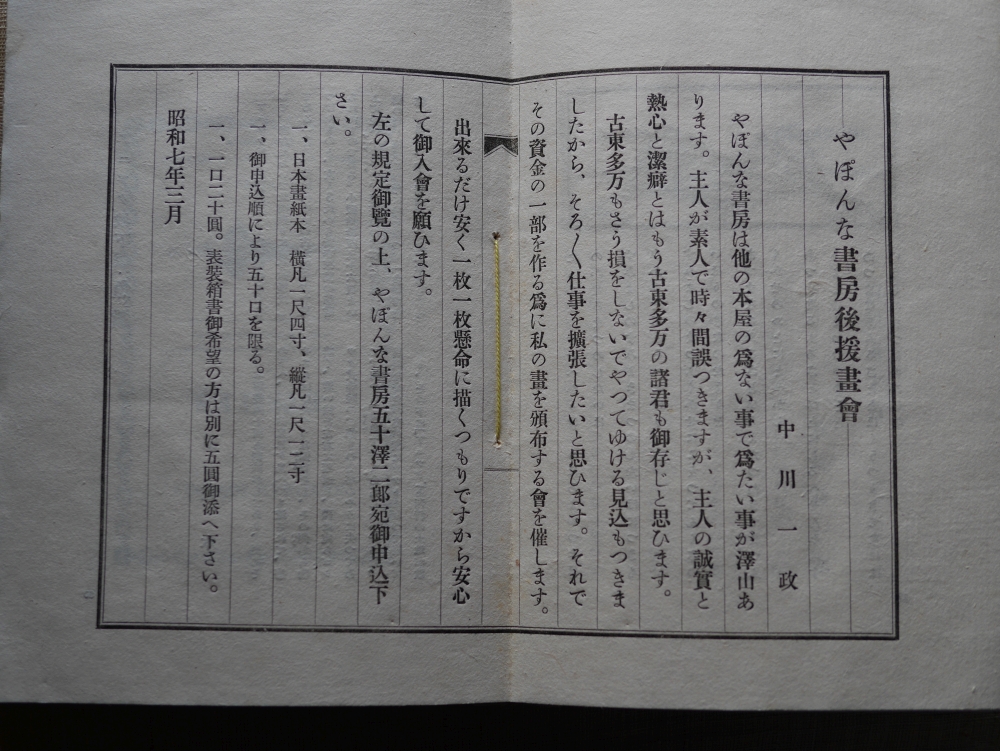 やぽんな書房後援畫會
中川一政
やぽんな書房は他の本屋の爲ない事で爲たい事が澤山あ
ります。主人が素人で時々間誤つきますが、主人の誠實と
熱心と潔癖とはもう古東多万の諸君も御存じと思ひます。
古東多万もさう損をしないでやつてゆける見込もつきま
したから、そろ〱仕事を擴張したいと思ひます。それで
その資金の一部を作る爲に私の畫を頒布する會を催します。
出來るだけ安く一枚一枚懸命に描くつもりですから安心
して御入會を願ひます。
左の規定御覽の上、やぽんな書房五十澤二郎宛御申込下
さい。
一、日本畫紙本　橫凡一尺四寸、縱凡一尺一二寸
一、御申込順により五十口を限る。
一、一口二十圓。表裝箱書御希望の方は別に五圓御添へ下さい。
昭和七年三月